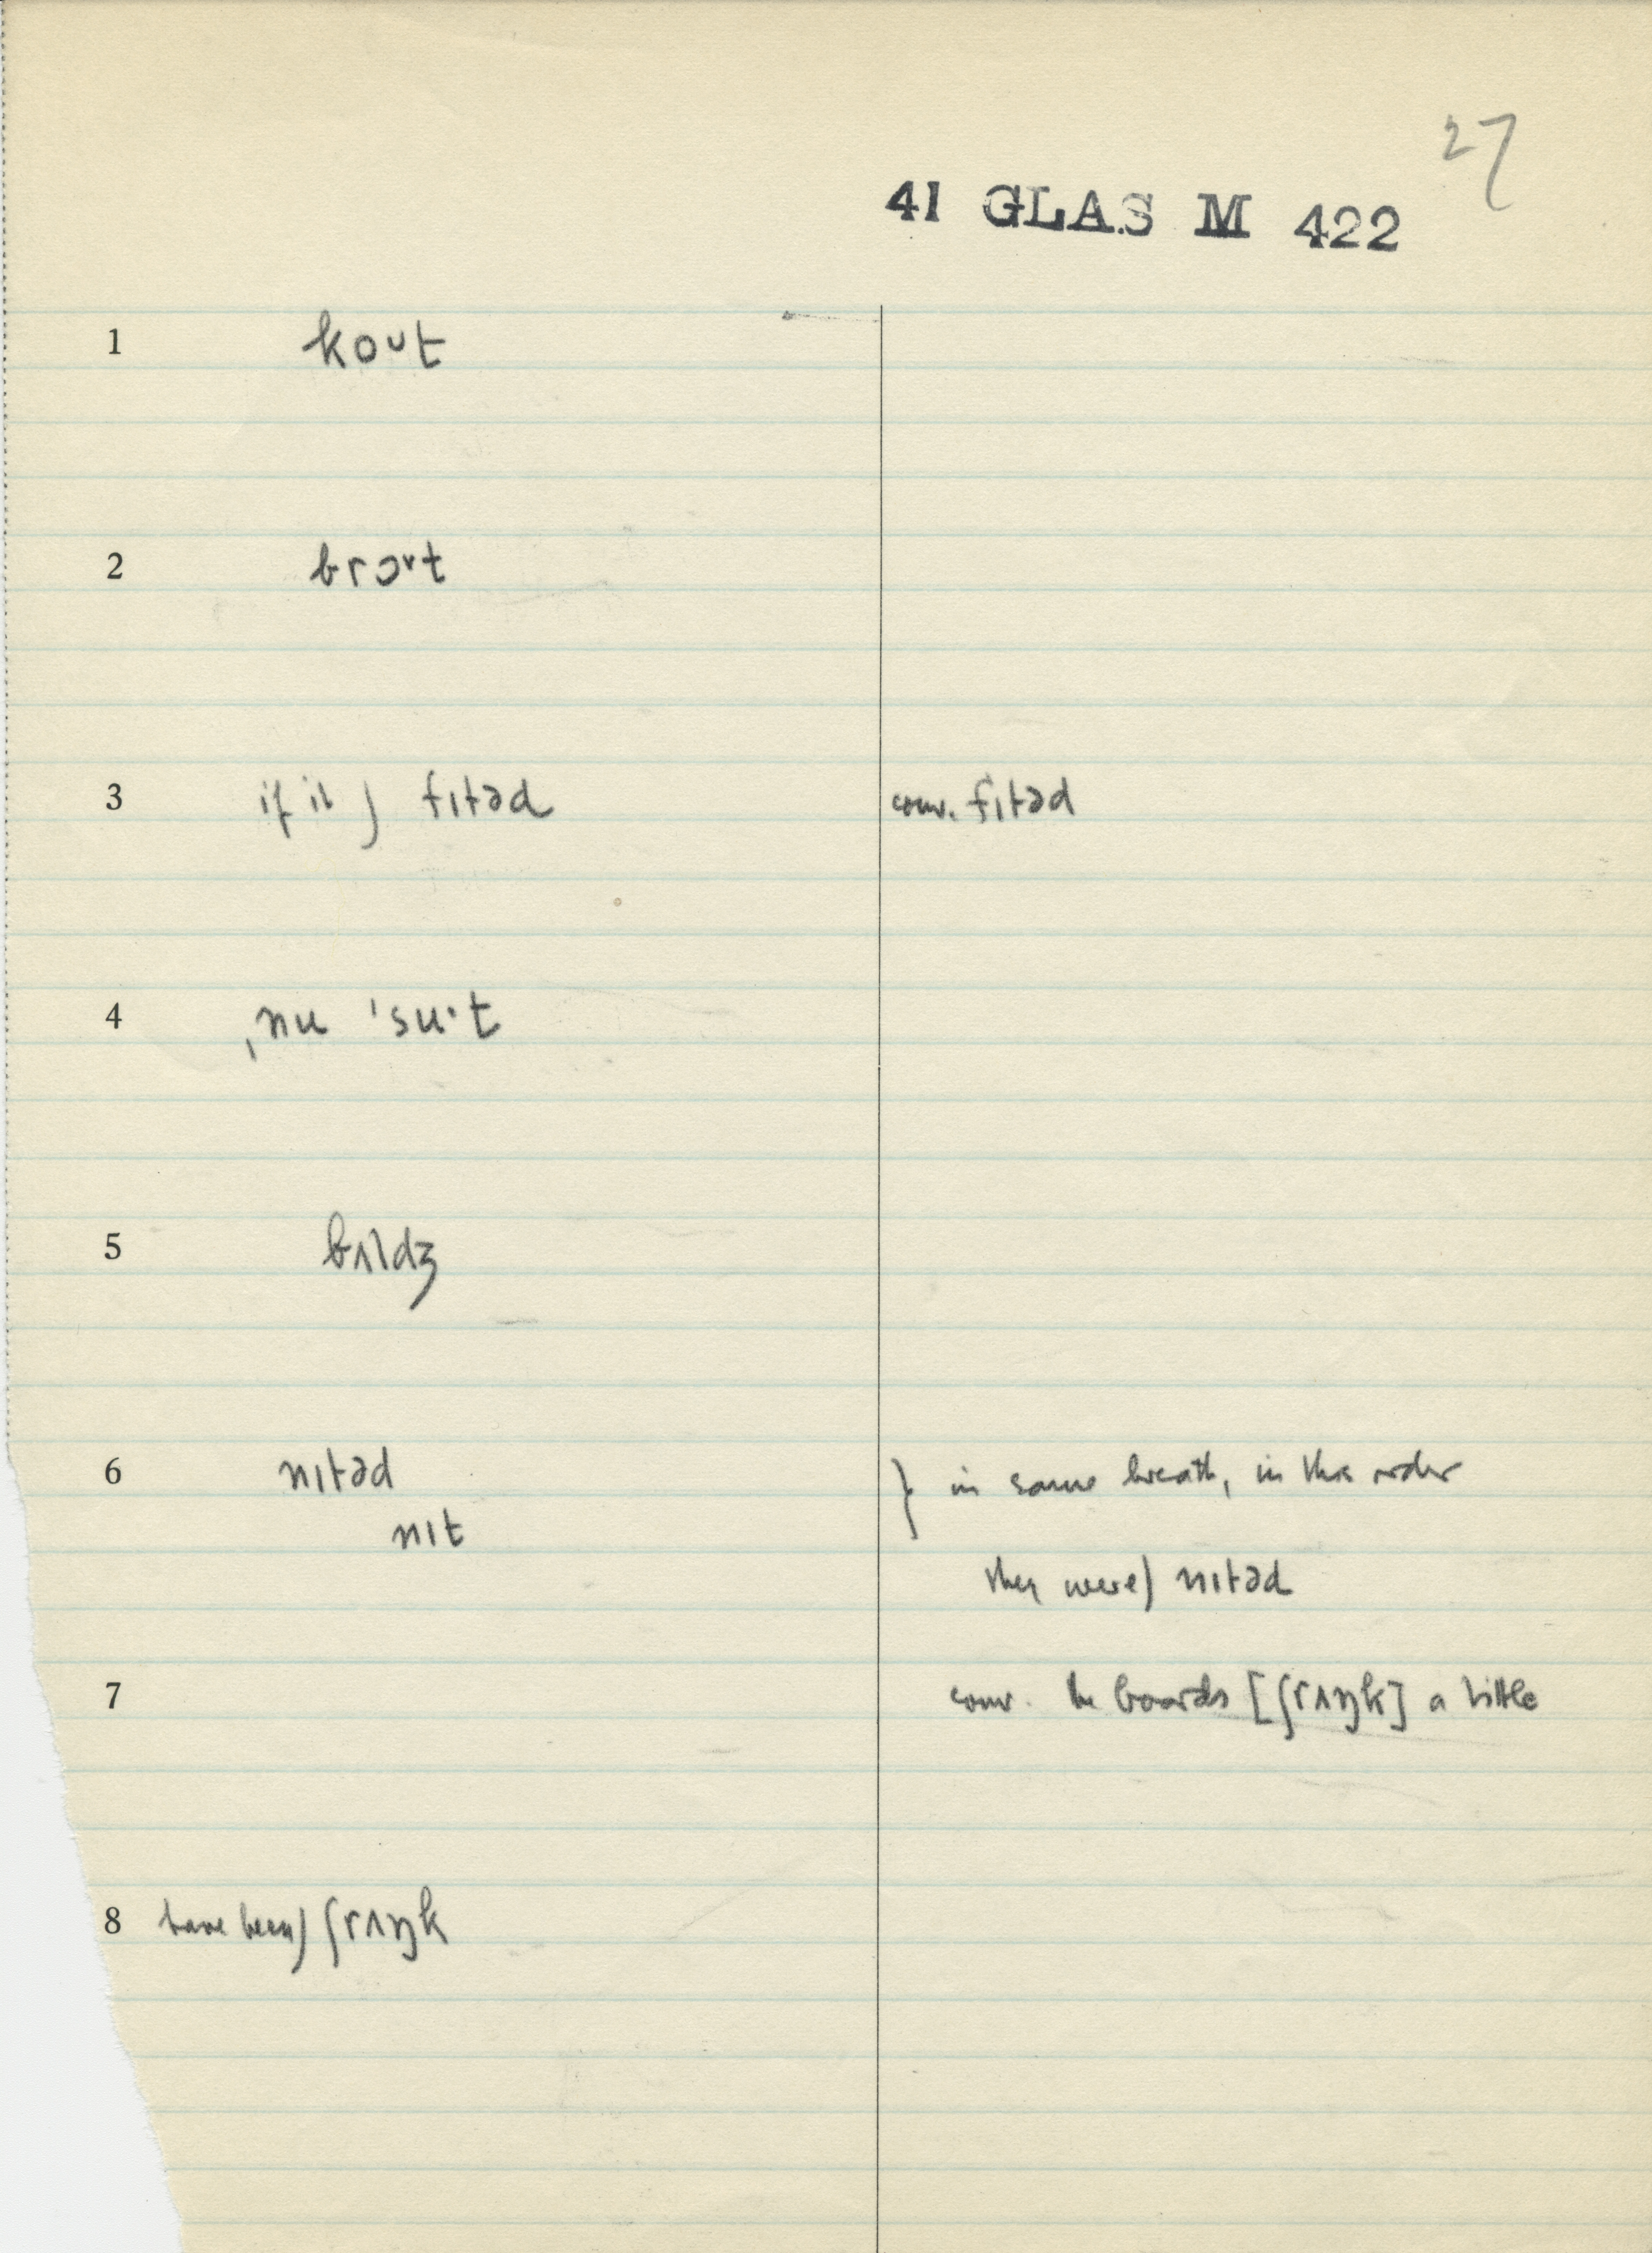 27
41 GLAS M 422
1 kout
2 brɔʊt
3 if it) fɪtəd conv. fɪtəd
4 ˌnu ˈsuˑt
5 bɪldʒ
6 nɪtəd } in same breath, in this order
nɪt
they were) nɪtəd
7 conv. the boards [ʃrʌŋk] a little
8 have been) ʃrʌŋk